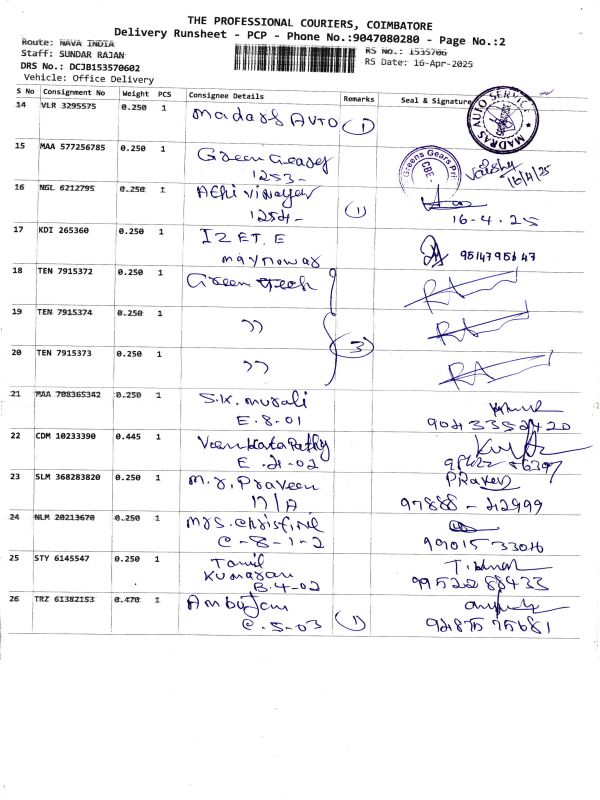 THE PROFESSIONAL COURIERS, COIMBATORE
Delivery Runsheet - PCP - Phone No.:9047080280 - Page No.:2
Route: NAVA INDIA
RS No.: 1535706
Staff: SUNDAR RAJAN
RS Date: 16-Apr-2025
DRS No.: DCJB153570602
Vehicle: Office Delivery
S No Consignment No Weight PCS Consignee Details Remarks Seal & Signature
14 VLR 3295575 0.250 1 Madars AUTO 1
MADRAS AUTO SERVICE
15 MAA 577256785 0.250 1 Green Gears
1253-
Greens Gears Pri
CBE-
16/4/25
16 NGL 6212795 0.250 1 Athi Vinayer
1254- 1
16-4.25
17 KDI 265360 0.250 1 IZET.E
9514795647
18 TEN 7915372 0.250 1 Green
19 TEN 7915374 0.250 1 ''
3
20 TEN 7915373 0.250 1 ''
21 MAA 708365342 0.250 1 S.K. Murali
E.8-01
22 CDM 10233390 0.445 1 Venkatapathy
E.4-02
23 SLM 368283820 0.250 1 M.r. Praveen
PRaveen
17/A
97888-42999
24 NLM 20213670 0.250 1 Mrs. Christine
C-8-1-2
9901533046
25 STY 6145547 0.250 1 Tamil
Kumaran
B.4-02
9952288433
26 TRZ 61382153 0.470 1 Ambujam
C.5-03 1
9487575681